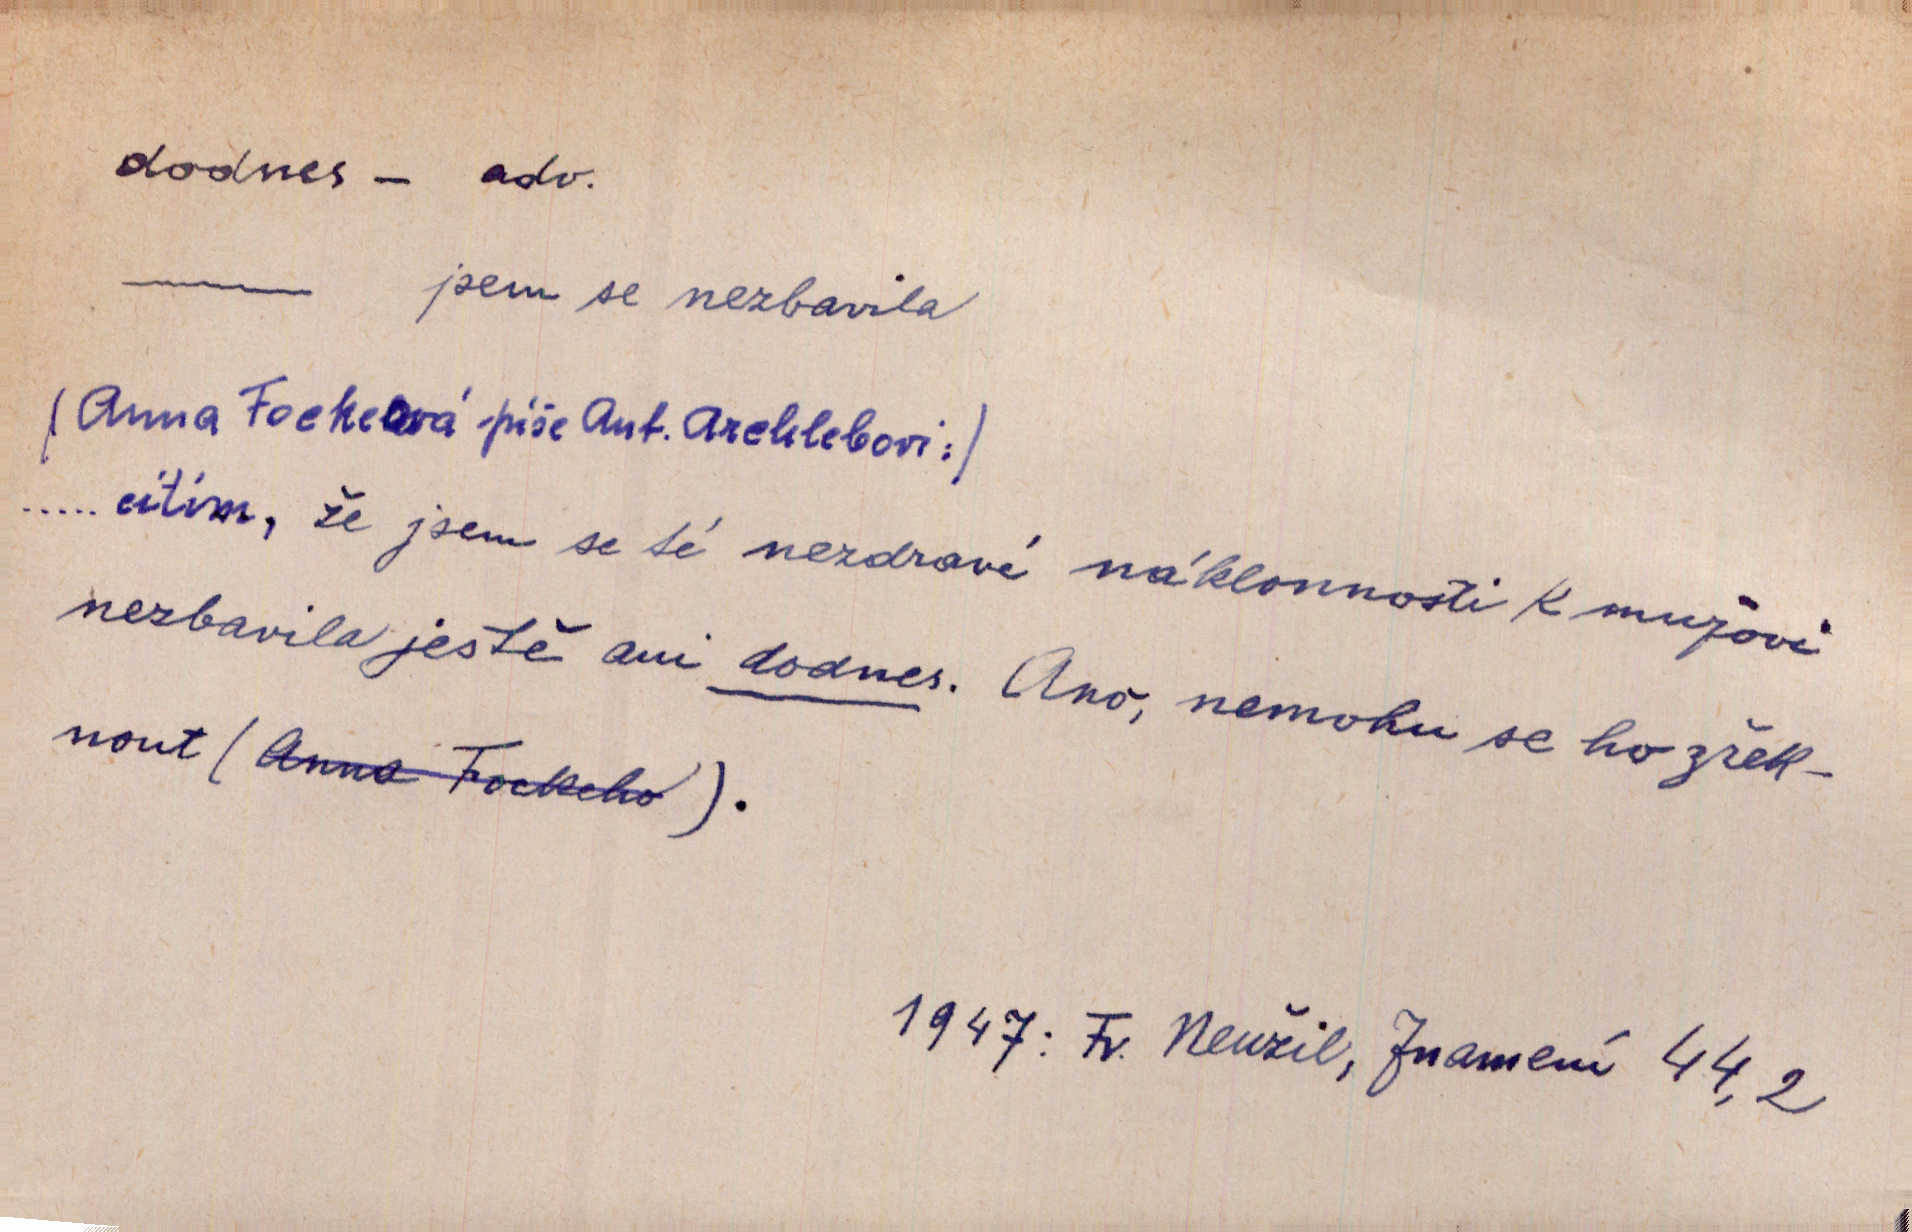 dodnes – adv.
——— jsem se nezbavila
(Anna Fockeová píše Ant. Archlebovi:)
..... cítím, že jsem se té nezdravé náklonnosti k mužovi
nezbavila ještě ani dodnes. Ano, nemohu se ho zřek-
nout (Anna Fockeho).
1947: Fr. Neužil, Znamení 44,2